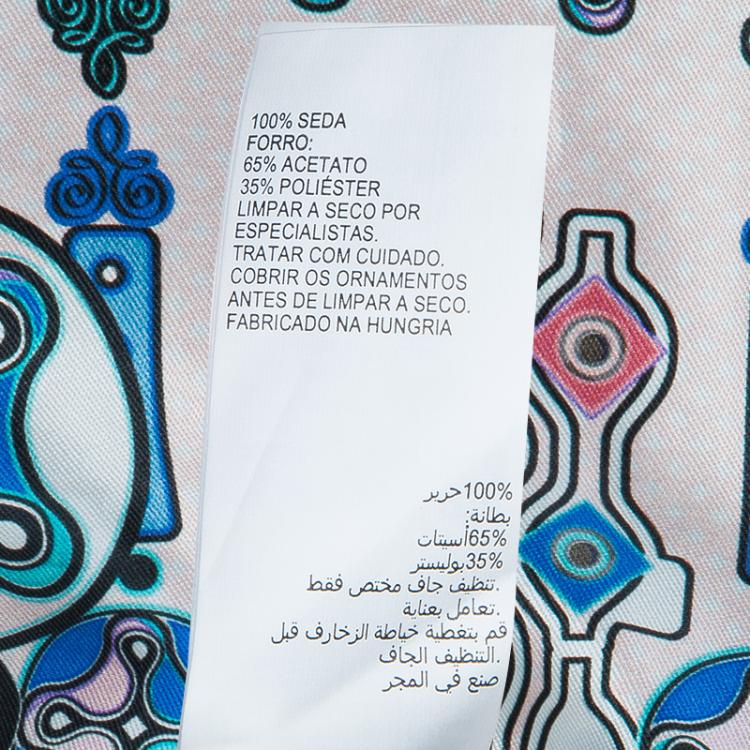 100% SEDA
FORRO:
65% ACETATO
35% POLIÉSTER
LIMPAR A SECO POR
ESPECIALISTAS.
TRATAR COM CUIDADO.
COBRIR OS ORNAMENTOS
ANTES DE LIMPAR A SECO.
FABRICADO NA HUNGRIA
100%حرير
بطانة:
65%أسيتات
35%بوليستر
تنظيف جاف مختص فقط.
تعامل بعناية.
قم بتغطية خياطة الزخارف قبل
التنظيف الجاف.
صنع في المجر